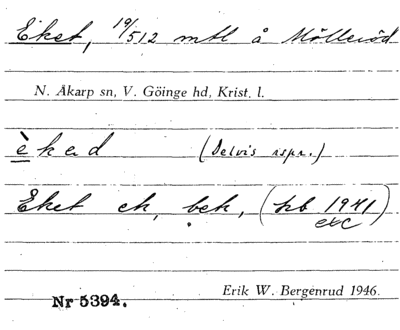 Eket, 19/512 mtl å Mölleröd
N. Åkarp sn, V. Göinge hd, Krist. l.
è k e d (Delvis rspr.)
Eket ek, bek, (sb 1941)
exc
Erik W. Bergenrud 1946.
Nr 5394.